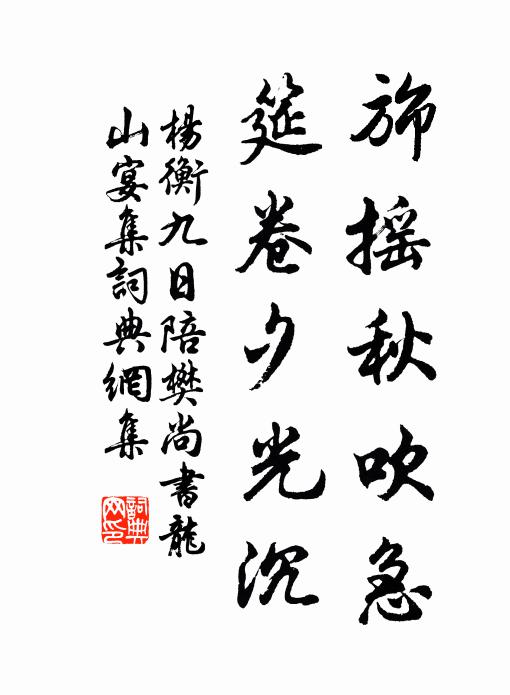 旆搖秋吹急
筵卷夕光沉
楊衡九日陪樊尚書龍
山宴集詞典網集
詞典
网印